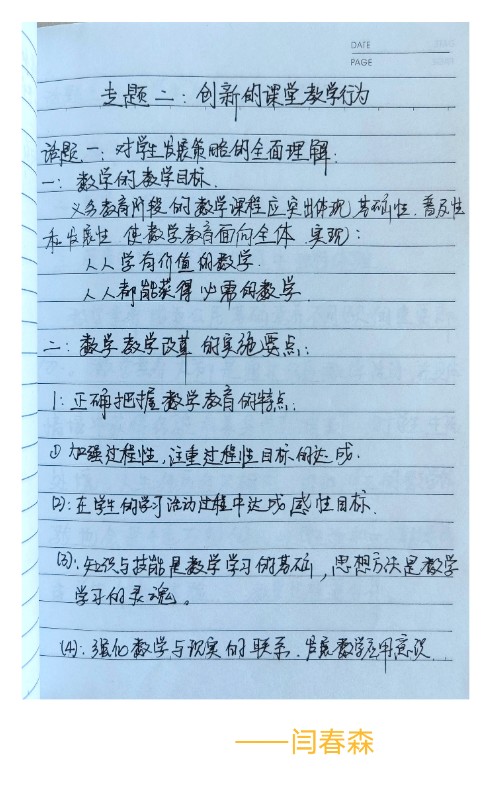 DATE
PAGE
专题二：创新的课堂教学行为
话题一：对学生发展策略的全面理解.
一：数学的教学目标.
义务教育阶段的数学课程应突出体现基础性.普及性
和发展性 使数学教育面向全体.实现：
人人学有价值的数学.
人人都能获得必需的数学.
二：数学教学改革的实施要点：
1：正确把握数学教育的特点.
① 加强过程性，注重过程性目标的达成.
(2)：在学生的学习活动过程中达成感性目标.
(3)：知识与技能是数学学习的基础，思想方法是数学
学习的灵魂。
(4)：强化数学与现实的联系.发展数学应用意识.
——闫春森